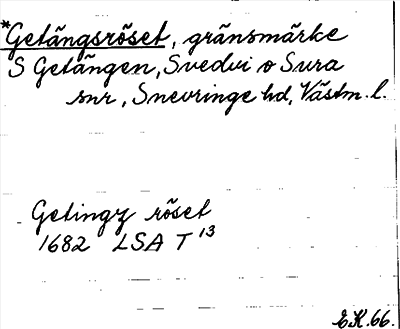 *Getängsröset, gränsmärke
S Getängen, Svedvi o Sura
snr, Snevringe hd, Västm. l.
Getingz röset
1682 LSA T 13
E.K. 66.